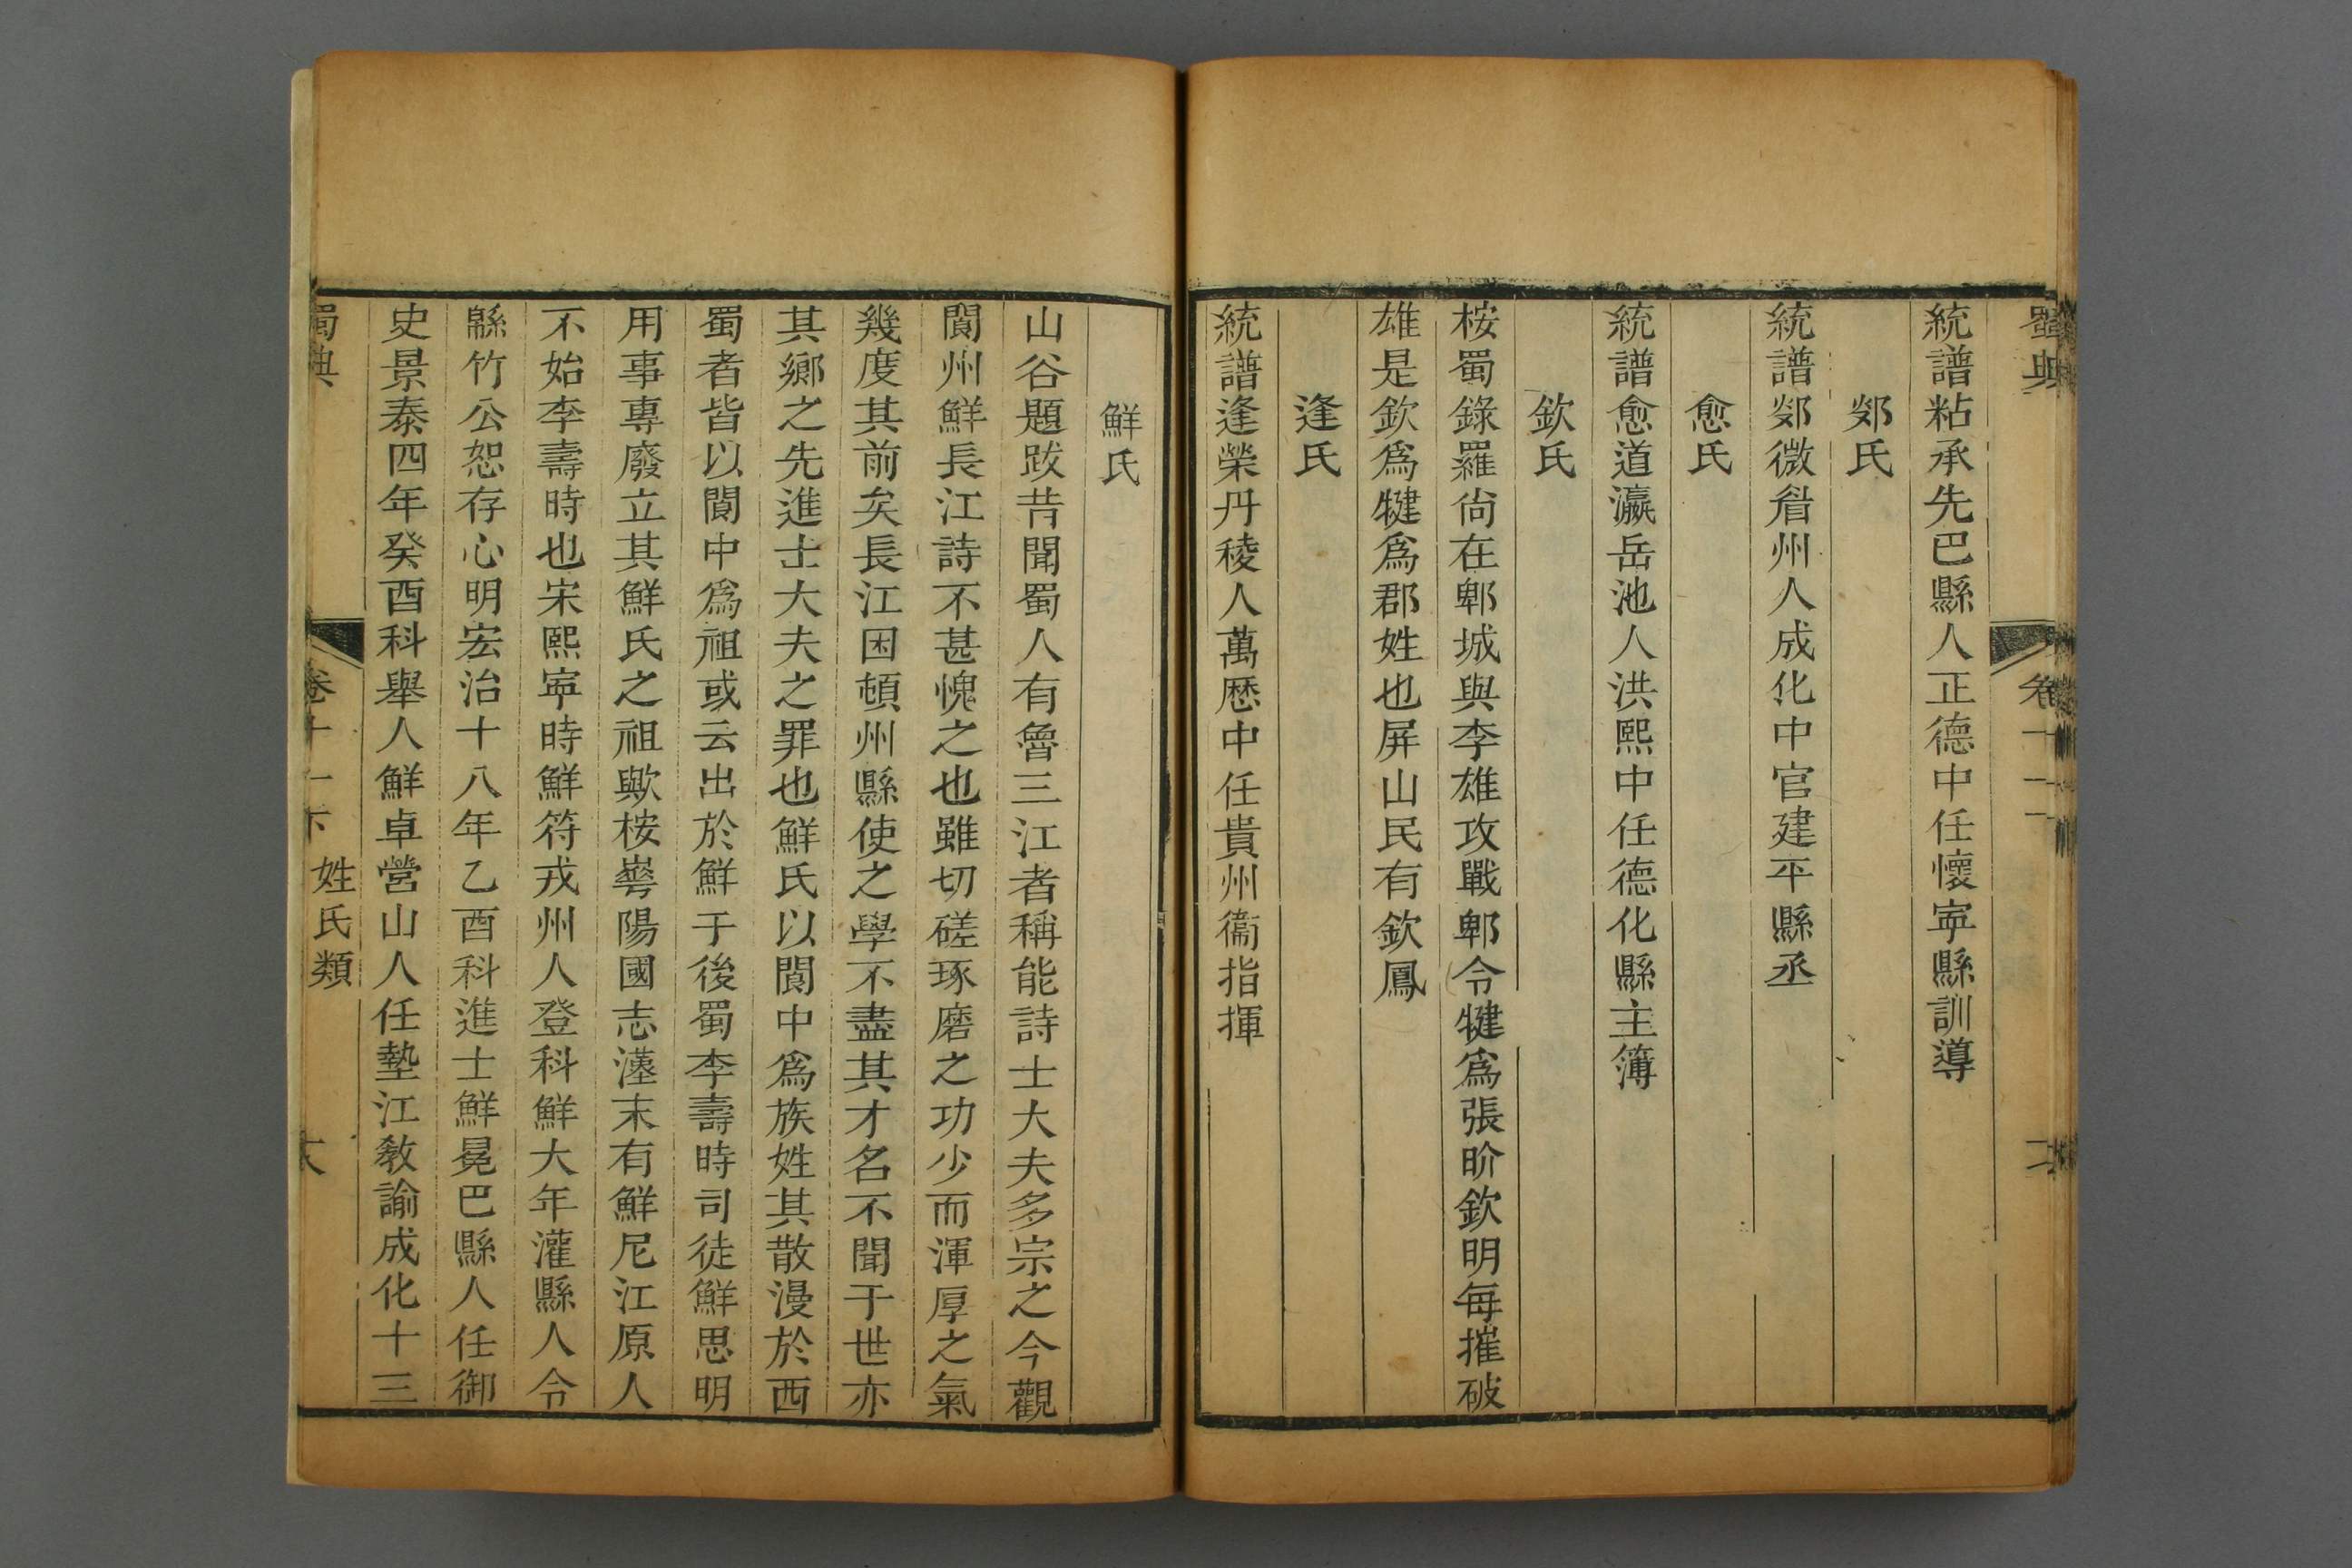 蜀典
卷十一
統譜粘承先巴縣人正德中任懷寧縣訓導
郯氏
統譜郯微眉州人成化中官建平縣丞
愈氏
統譜愈道瀛岳池人洪熙中任德化縣主簿
欽氏
桉蜀錄羅尚在郫城與李雄攻戰郫令犍爲張昕欽明每摧破
雄是欽爲犍爲郡姓也屏山民有欽鳳
逢氏
統譜逢榮丹稜人萬歷中任貴州衞指揮
鮮氏
山谷題跋昔聞蜀人有魯三江者稱能詩士大夫多宗之今觀
閬州鮮長江詩不甚愧之也雖切磋琢磨之功少而渾厚之氣
幾度其前矣長江困頓州縣使之學不盡其才名不聞于世亦
其鄉之先進士大夫之罪也鮮氏以閬中爲族姓其散漫於西
蜀者皆以閬中爲祖或云出於鮮于後蜀李壽時司徒鮮思明
用事專廢立其鮮氏之祖歟桉華陽國志漢末有鮮尼江原人
不始李壽時也宋熙寧時鮮符戎州人登科鮮大年灌縣人令
緜竹公恕存心明宏治十八年乙酉科進士鮮冕巴縣人任御
史景泰四年癸酉科舉人鮮卓營山人任墊江敎諭成化十三
蜀典
卷十一下
姓氏類